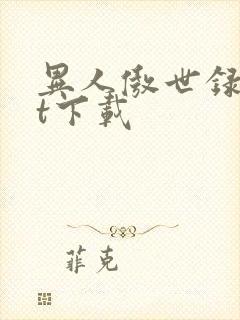 異人傲世録
t下載
菲克